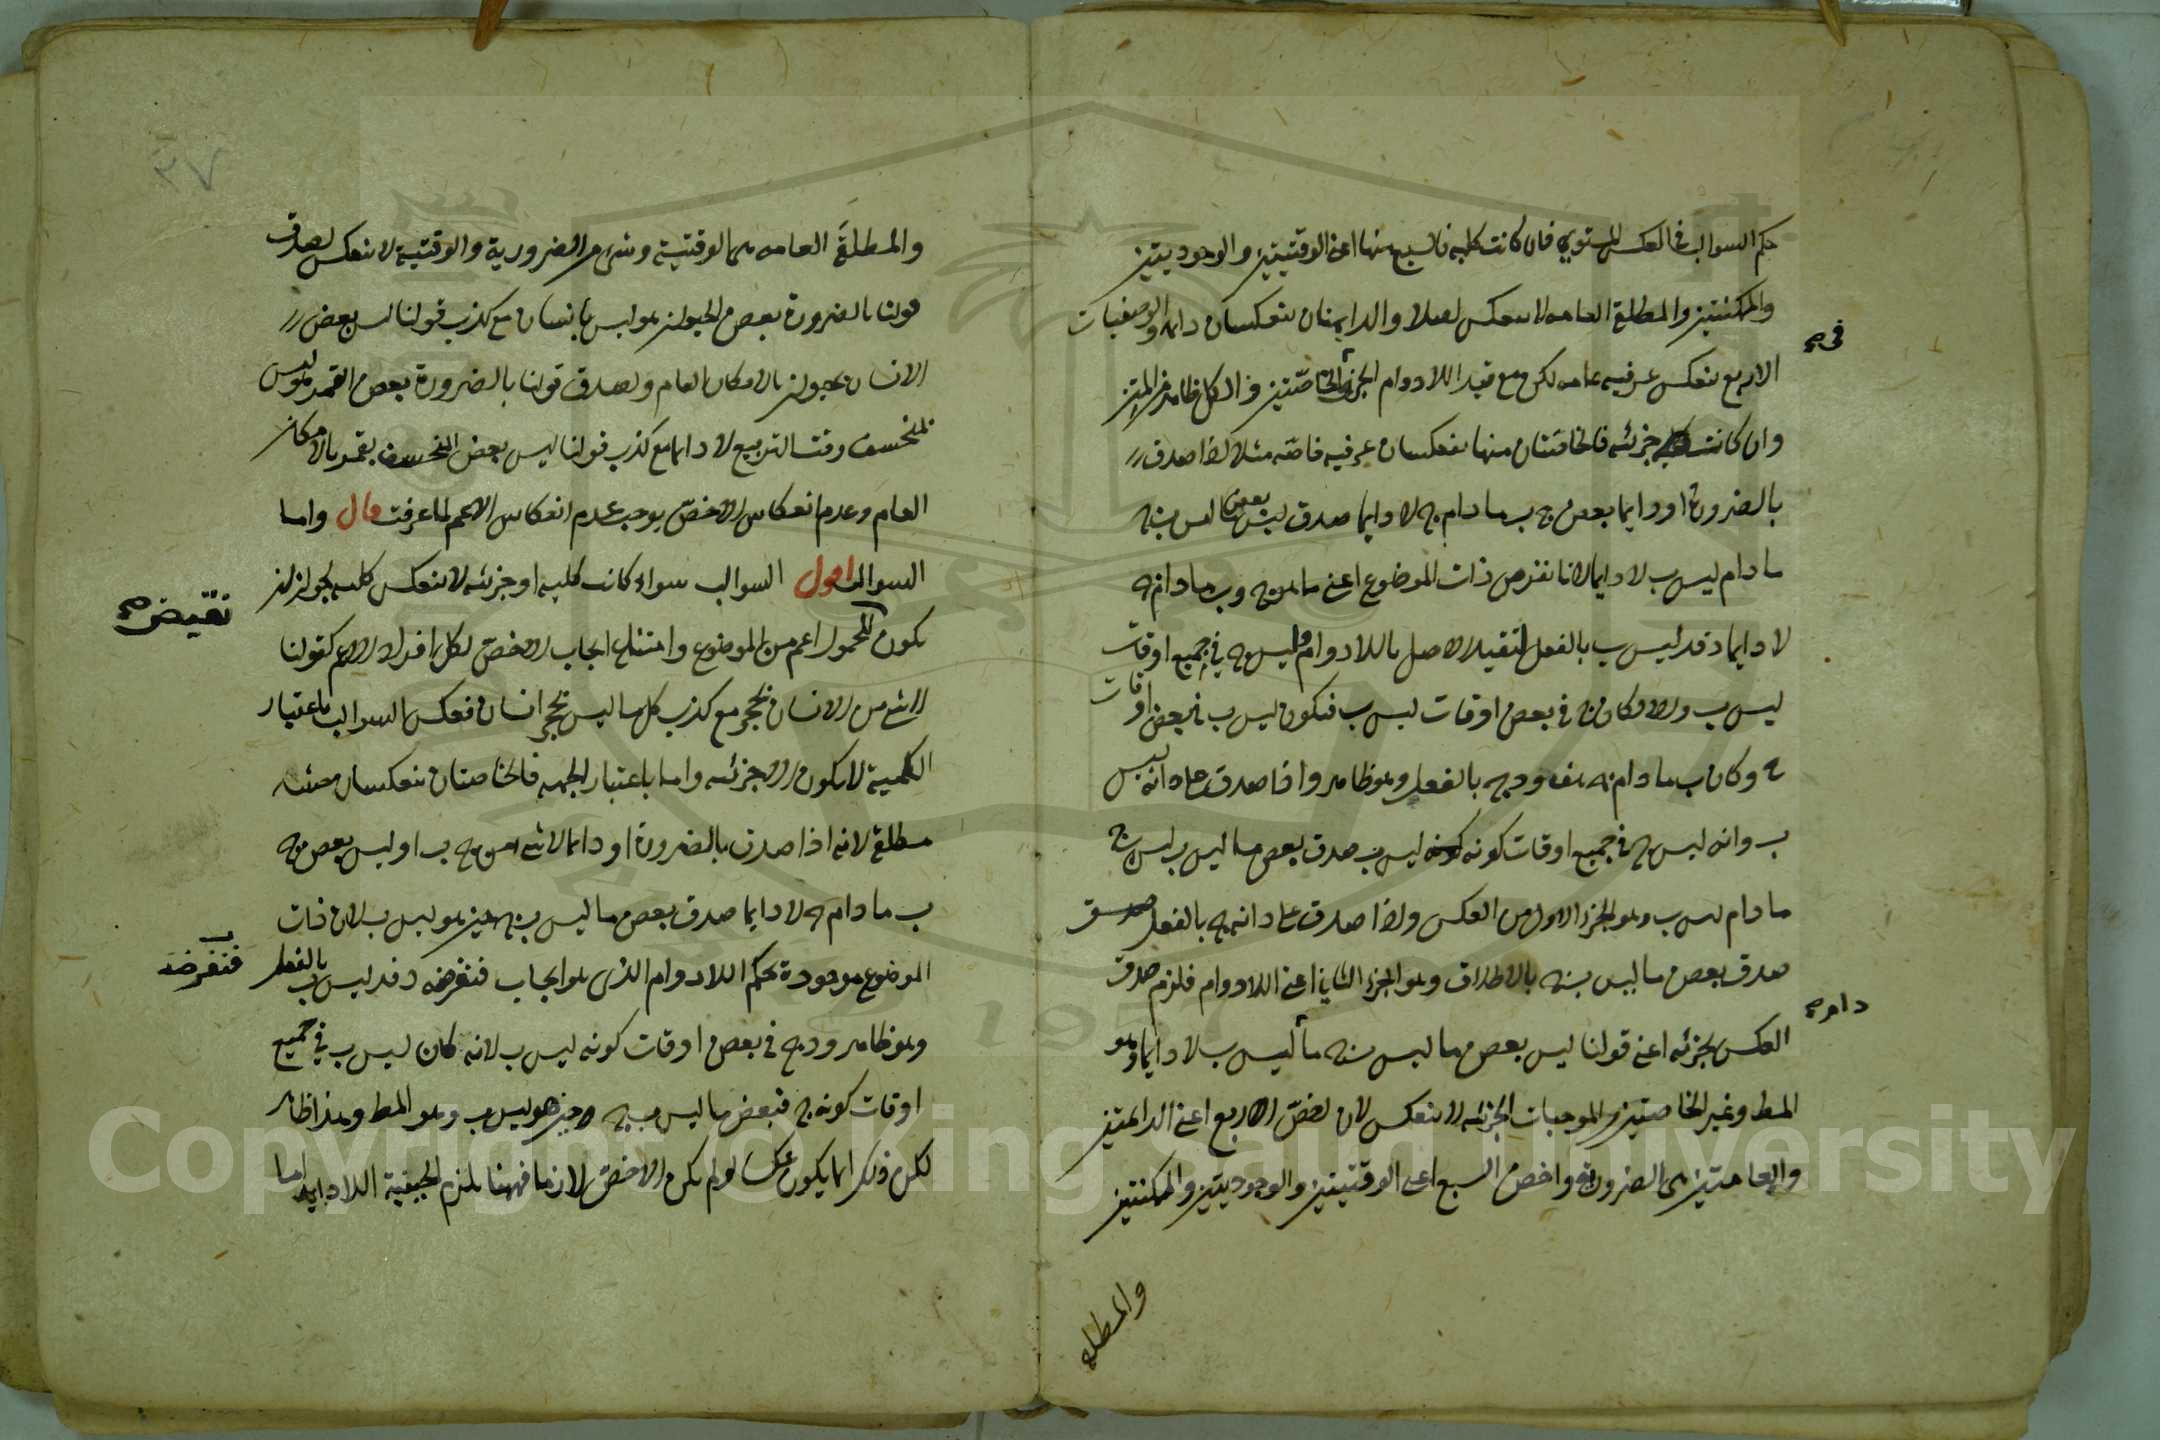 حكم السوالب في العكس المستوي فان كانت كلية فالسبع منها اعنى الوقتيتين والوجوديتين
والممكنتين والمطلقة العامه لا ينعكس اصلا والدايمتان تنعكسان دايمة والوصفيات
الاربع ينعكس عرفيه عامه لكن مع قيد اللادوام في الجزء في الخاصتين والكل ظاهر
وان كانت جزئيه فالخاصتان منها تنعكسان عرفيه خاصه مثلا اذا صدق
بالضرورة او دايما بعض ج ب ما دام ج لا دايما صدق بعض ما ليس ب ليس ج
ما دام ليس ب لا دايما لانا نفرض ذات الموضوع اعنى ما هو ج و ب ما دام ج
لا دايما د فد ليس ب بالفعل لتقيد الاصل باللادوام وليس ج في جميع اوقات
ليس ب والا لكان ج في بعض اوقات ليس ب فتكون ليس ب في بعض اوقات
ج وكان ب ما دام ج هف و د ج بالفعل وهو ظاهر واذا صدق على د انه ليس
ب وانه ليس ج في جميع اوقات كونه ليس ب صدق بعض ما ليس ب ليس ج
ما دام ليس ب وهو الجزء الاول من العكس واذا صدق على د انه ج بالفعل
صدق بعض ما ليس ب ج بالاطلاق وهو الجزء الثاني اعنى اللادوام فلزم صدق
العكس بجزئيه اعنى قولنا ليس بعض ما ليس ب ج ما دام ليس ب لا دايما وهو
المط وغير الخاصتين والموجبات الجزئيه لا ينعكس لان اخص الاربع اعنى الدايمتين
والعامتين هى الضرورة واخص السبع اعنى الوقتيتين والوجوديتين والممكنتين
في صح
دام صح
والمطلقه
٣٧
والمطلقة العامه هى الوقتيتة وشئ من الضرورية والوقتية لا ينعكس لصدق
قولنا بالضرورة بعض الحيوان هو ليس بانسان مع كذب قولنا ليس بعض
الانسان بحيوان بالامكان العام ولصدق قولنا بالضرورة بعض القمر هو ليس
بمنخسف وقت التربيع لا دايما مع كذب قولنا ليس بعض المنخسف بقمر بالامكان
العام وعدم انعكاس الاخص يوجب عدم انعكاس الاعم لما عرفت قال واما
السوالب اقول السوالب سواء كانت كلية او جزئيه لا ينعكس كلية لجواز ان
يكون المحمول اعم من الموضوع وامتناع ايجاب الاخص لكل افراد الاعم كقولنا
لا شئ من الانسان بحجر مع كذب كل ما ليس بحجر انسان فعكس السوالب باعتبار
الكمية لا يكون الا جزئيه واما باعتبار الجهه فالخاصتان تنعكسان حينيه
مطلقة لانه اذا صدق بالضرورة او دايما لا شئ من ج ب او ليس بعض ج
ب ما دام ج لا دايما صدق بعض ما ليس ب ج حين هو ليس ب لان ذات
الموضوع موجودة بحكم اللادوام الذى هو ايجاب فنفرضه د فد ليس ب بالفعل
وهو ظاهر و د ج في بعض اوقات كونه ليس ب لانه كان ليس ب في جميع
اوقات كونه ج فبعض ما ليس ب ج حين هو ليس ب وهو المط وهذا ظاهر
لكن ذلك انما يكون عكسا لو لم يكن الاخص لازما فههنا يلزم الحينية اللادايمه اما
نقيض صح
فنفرضه ب